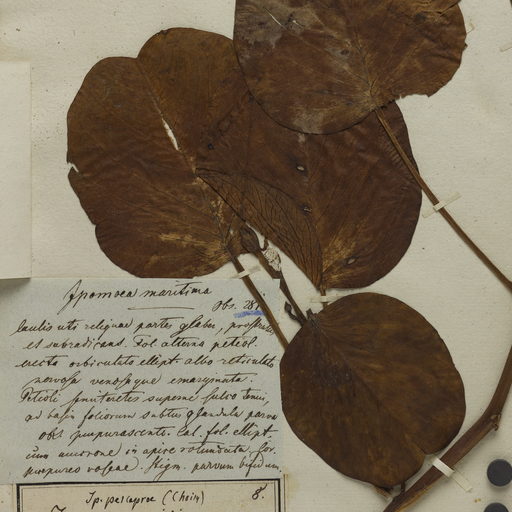 Ipomoea maritima
Obs. 281.
Caulis uti reliquae partes glaber, prostratus
et subradicans. Fol. alterna petiol.
erecta orbiculato ellipt. albo reticulato
venosque emarginata.
Petioli superne sulco tenui,
ad basin foliorum subtus glandula parva
obs. purpurascente. Cal. fol. ellipt.
cum mucrone in apice rotundata. Cor.
purpureo roseae. Stigm. parvum bifidum.
Ip. pescaprae (Choisy) 8.